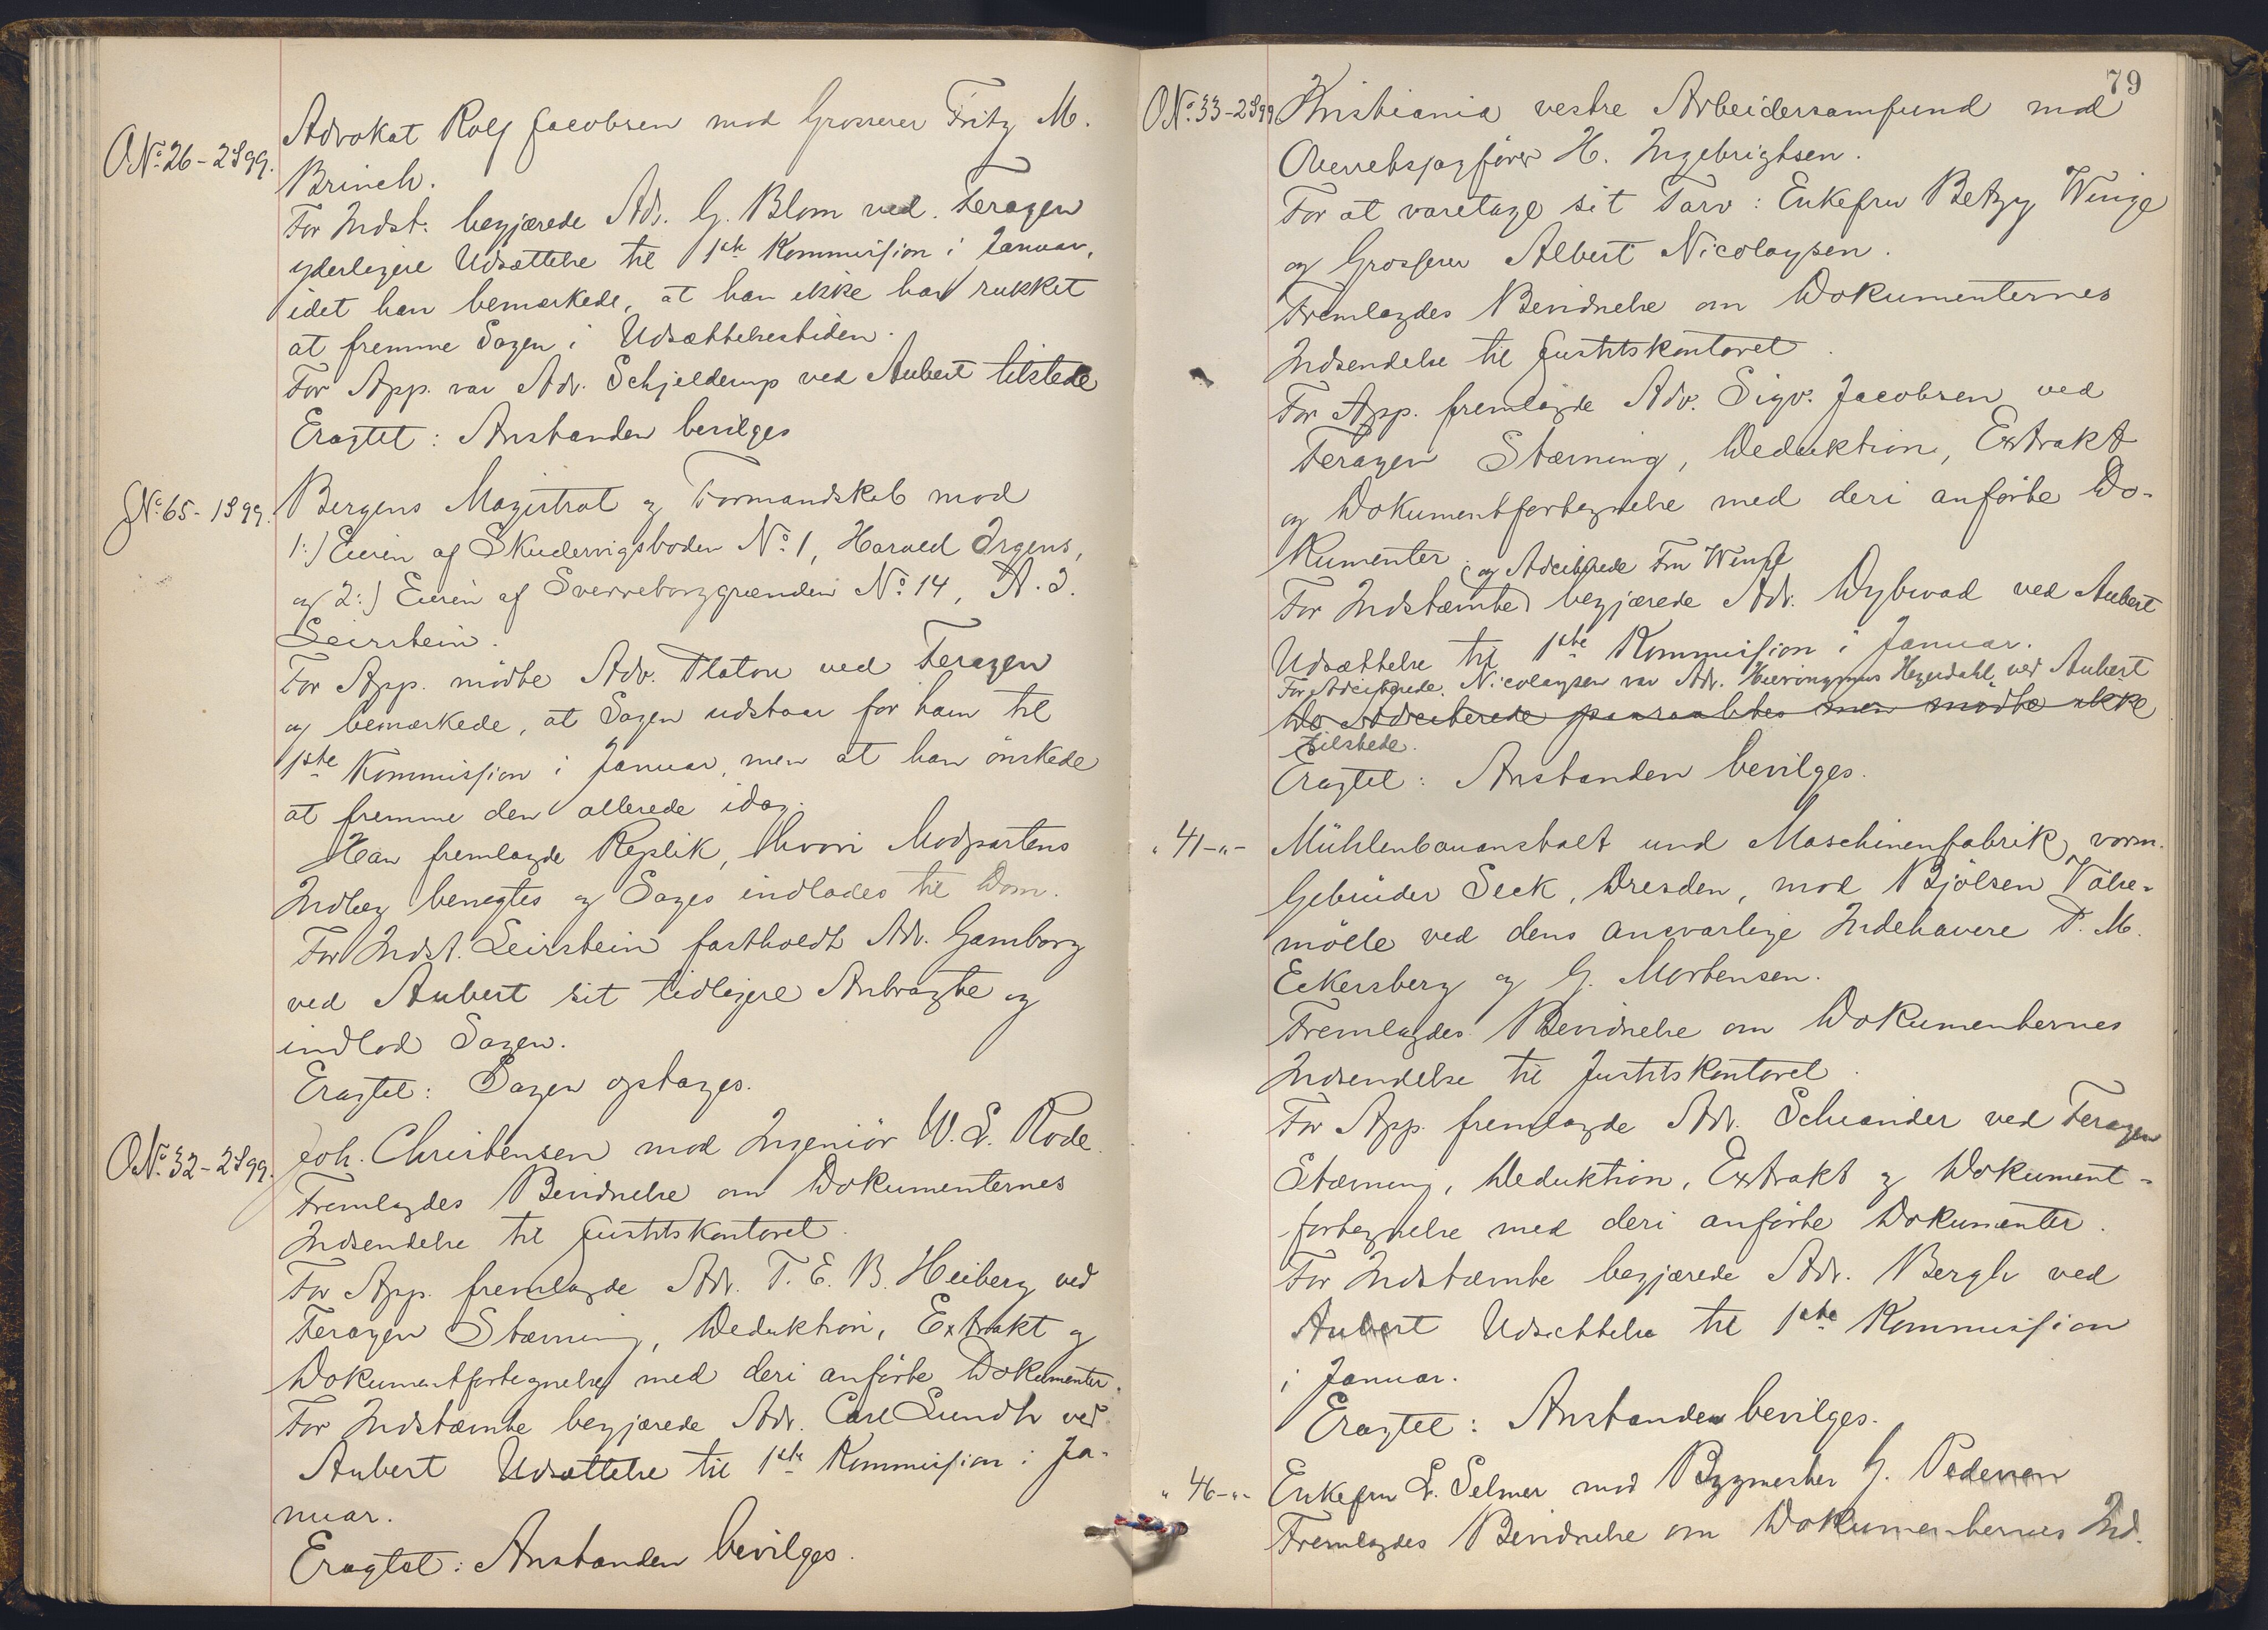 O.No. 26 - 2S99.
Advokat Rolf Jacobsen mod Grosserer Fritz M.
Brinch.
For Indst. begjærede Adv. G. Blom ved Feragen
yderligere Udsættelse til 1ste Kommission i Januar,
idet han bemærkede, at han ikke har rukket
at fremme Sagen i Udsættelsestiden.
For App. var Adv. Schjelderup ved Aubert tilstede
Eragtet: Anstanden bevilges
No. 65 - 1S99.
Bergens Magistrat og Formandskab mod
1:) Eieren af Skudervigsboden No. 1, Harald Irgens,
og 2:) Eieren af Sverreborggrænden No. 14, A. J.
Seirstein.
For App. mødte Adv. Platou ved Feragen
og bemærkede, at Sagen udstaar for ham til
1ste Kommission i Januar, men at han ønskede
at fremme den allerede idag.
Han fremlagde Replik, hvori Modpartens
Indlæg benegtes og Sages indlades til Dom.
For Indst. Seirstein fastholdt Adv. Gamborg
ved Aubert sit tidligere Anbragte og
indlod Sagen.
Eragtet: Sagen optages.
O.No. 32 - 2S99.
Joh. Christensen mod Ingeniør W. L. Rode.
Fremlagdes Bevidnelse om Dokumenternes
Indsendelse til Justitskontoret.
For App. fremlagde Adv. T. E. B. Heiberg ved
Feragen Stævning, Deduktion, Extrakt og
Dokumentfortegnelse med deri anførte Dokumenter.
For Indstævnte begjærede Adv. Carl Lundh ved
Aubert Udsættelse til 1ste Kommission i Ja-
nuar.
Eragtet: Anstanden bevilges.
79
O.No. 33 - 2S99
Kristiania vestre Arbeidersamfund mod
Overretssagfører H. Ingebrigtsen.
For at varetage sit Tarv: Enkefru Betzy Winge
og Grosserer Albert Nicolaysen.
Fremlagdes Bevidnelse om Dokumenternes
Indsendelse til Justitskontoret.
For App. fremlagde Adv. Sigv. Jacobsen ved
Feragen Stævning, Deduktion, Extrakt
og Dokumentfortegnelse med deri anførte Do-
kumenter.
og Adciterede Fru Winge
For Indstævnte begjærede Adv. Dybwad ved Aubert
Udsættelse til 1ste Kommission i Januar.
For Adciterede Nicolaysen var Adv. Hieronymus Heyerdahl ved Aubert
De Adciterede paaraabtes men mødte ikke
tilstede.
Eragtet: Anstanden bevilges.
" 41 - " -
Mühlenbauanstalt und Maschinenfabrik, vorm.
Gebrüder Seck, Dresden, mod Bjølsen Valse-
mølle ved dens ansvarlige Indehavere P. M.
Eckersberg og G. Mortensen.
Fremlagdes Bevidnelse om Dokumenternes
Indsendelse til Justitskontoret.
For App. fremlagde Adv. Schiander ved Feragen
Stævning, Deduktion, Extrakt og Dokument-
fortegnelse med deri anførte Dokumenter.
For Indstævnte begjærede Adv. Bergh ved
Aubert Udsættelse til 1ste Kommission
i Januar.
Eragtet: Anstanden bevilges.
" 46 - " -
Enkefru L. Selmer mod Bygmester G. Pedersen
Fremlagdes Bevidnelse om Dokumenternes Ind.